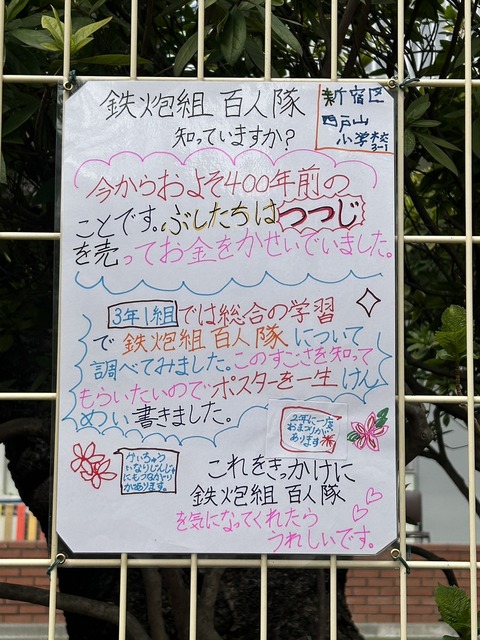 鉄炮組 百人隊
知っていますか?
新宿区
戸山
小学校
3-1
今からおよそ400年前の
ことです。ぶしたちはつつじ
を売ってお金をかせいでいました。
3年1組では総合の学習
で 鉄炮組 百人隊 について
調べてみました。このすごさを知って
もらいたいのでポスターを一生けん
めい書きました。
2年に一度
おまつりが
あります
かいちゅう
いなりじんじゃ
にもつながり
があります。
これをきっかけに
鉄炮組 百人隊
を気になってくれたら
うれしいです。